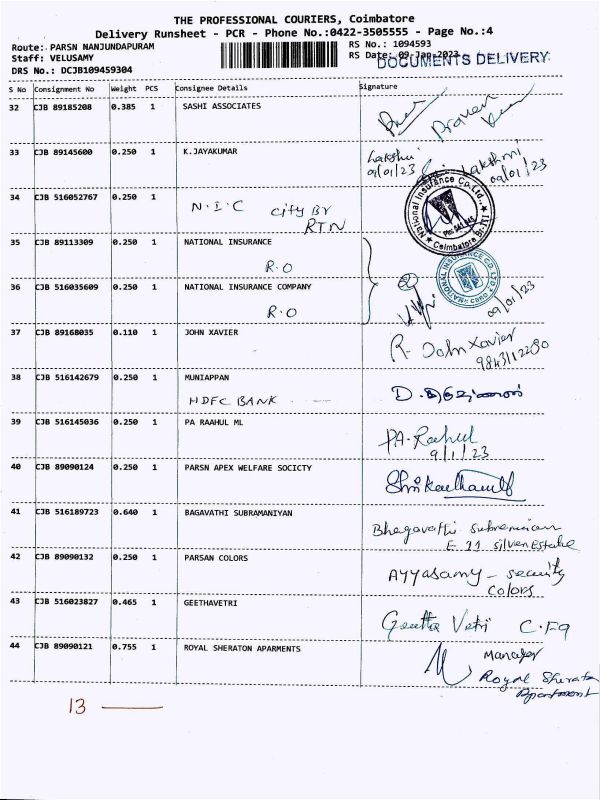 THE PROFESSIONAL COURIERS, Coimbatore
Delivery Runsheet - PCR - Phone No.:0422-3505555 - Page No.:4
Route: PARSN NANJUNDAPURAM
RS No.: 1094593
Staff: VELUSAMY
RS Date: 09-Jan-2023
DOCUMENTS DELIVERY
DRS No.: DCJB109459304
S No Consignment No Weight PCS Consignee Details Signature
32 CJB 89185208 0.385 1 SASHI ASSOCIATES
Praveen
33 CJB 89145600 0.250 1 K.JAYAKUMAR
Lakshmi
09/01/23
Lakshmi
09/01/23
34 CJB 516052767 0.250 1
N.I.C City BR
RTN
National Insurance Co.Ltd.,
Coimbatore Br-III
35 CJB 89113309 0.250 1 NATIONAL INSURANCE
R.O
36 CJB 516035609 0.250 1 NATIONAL INSURANCE COMPANY
R.O
09/01/23
37 CJB 89168035 0.110 1 JOHN XAVIER
R. John Xavier
9843112280
38 CJB 516142679 0.250 1 MUNIAPPAN
HDFC BANK
39 CJB 516145036 0.250 1 PA RAAHUL ML
PA.Raahul
9/1/23
40 CJB 89090124 0.250 1 PARSN APEX WELFARE SOCICTY
41 CJB 516189723 0.640 1 BAGAVATHI SUBRAMANIYAN
Bhagavathi Subramaniam
E 11 Silver Estate
42 CJB 89090132 0.250 1 PARSAN COLORS
Ayyasamy - security
Colors
43 CJB 516023827 0.465 1 GEETHAVETRI
Geetha Vetri C.F9
44 CJB 89090121 0.755 1 ROYAL SHERATON APARMENTS
Manager
Royal Sheraton
Apartment
13